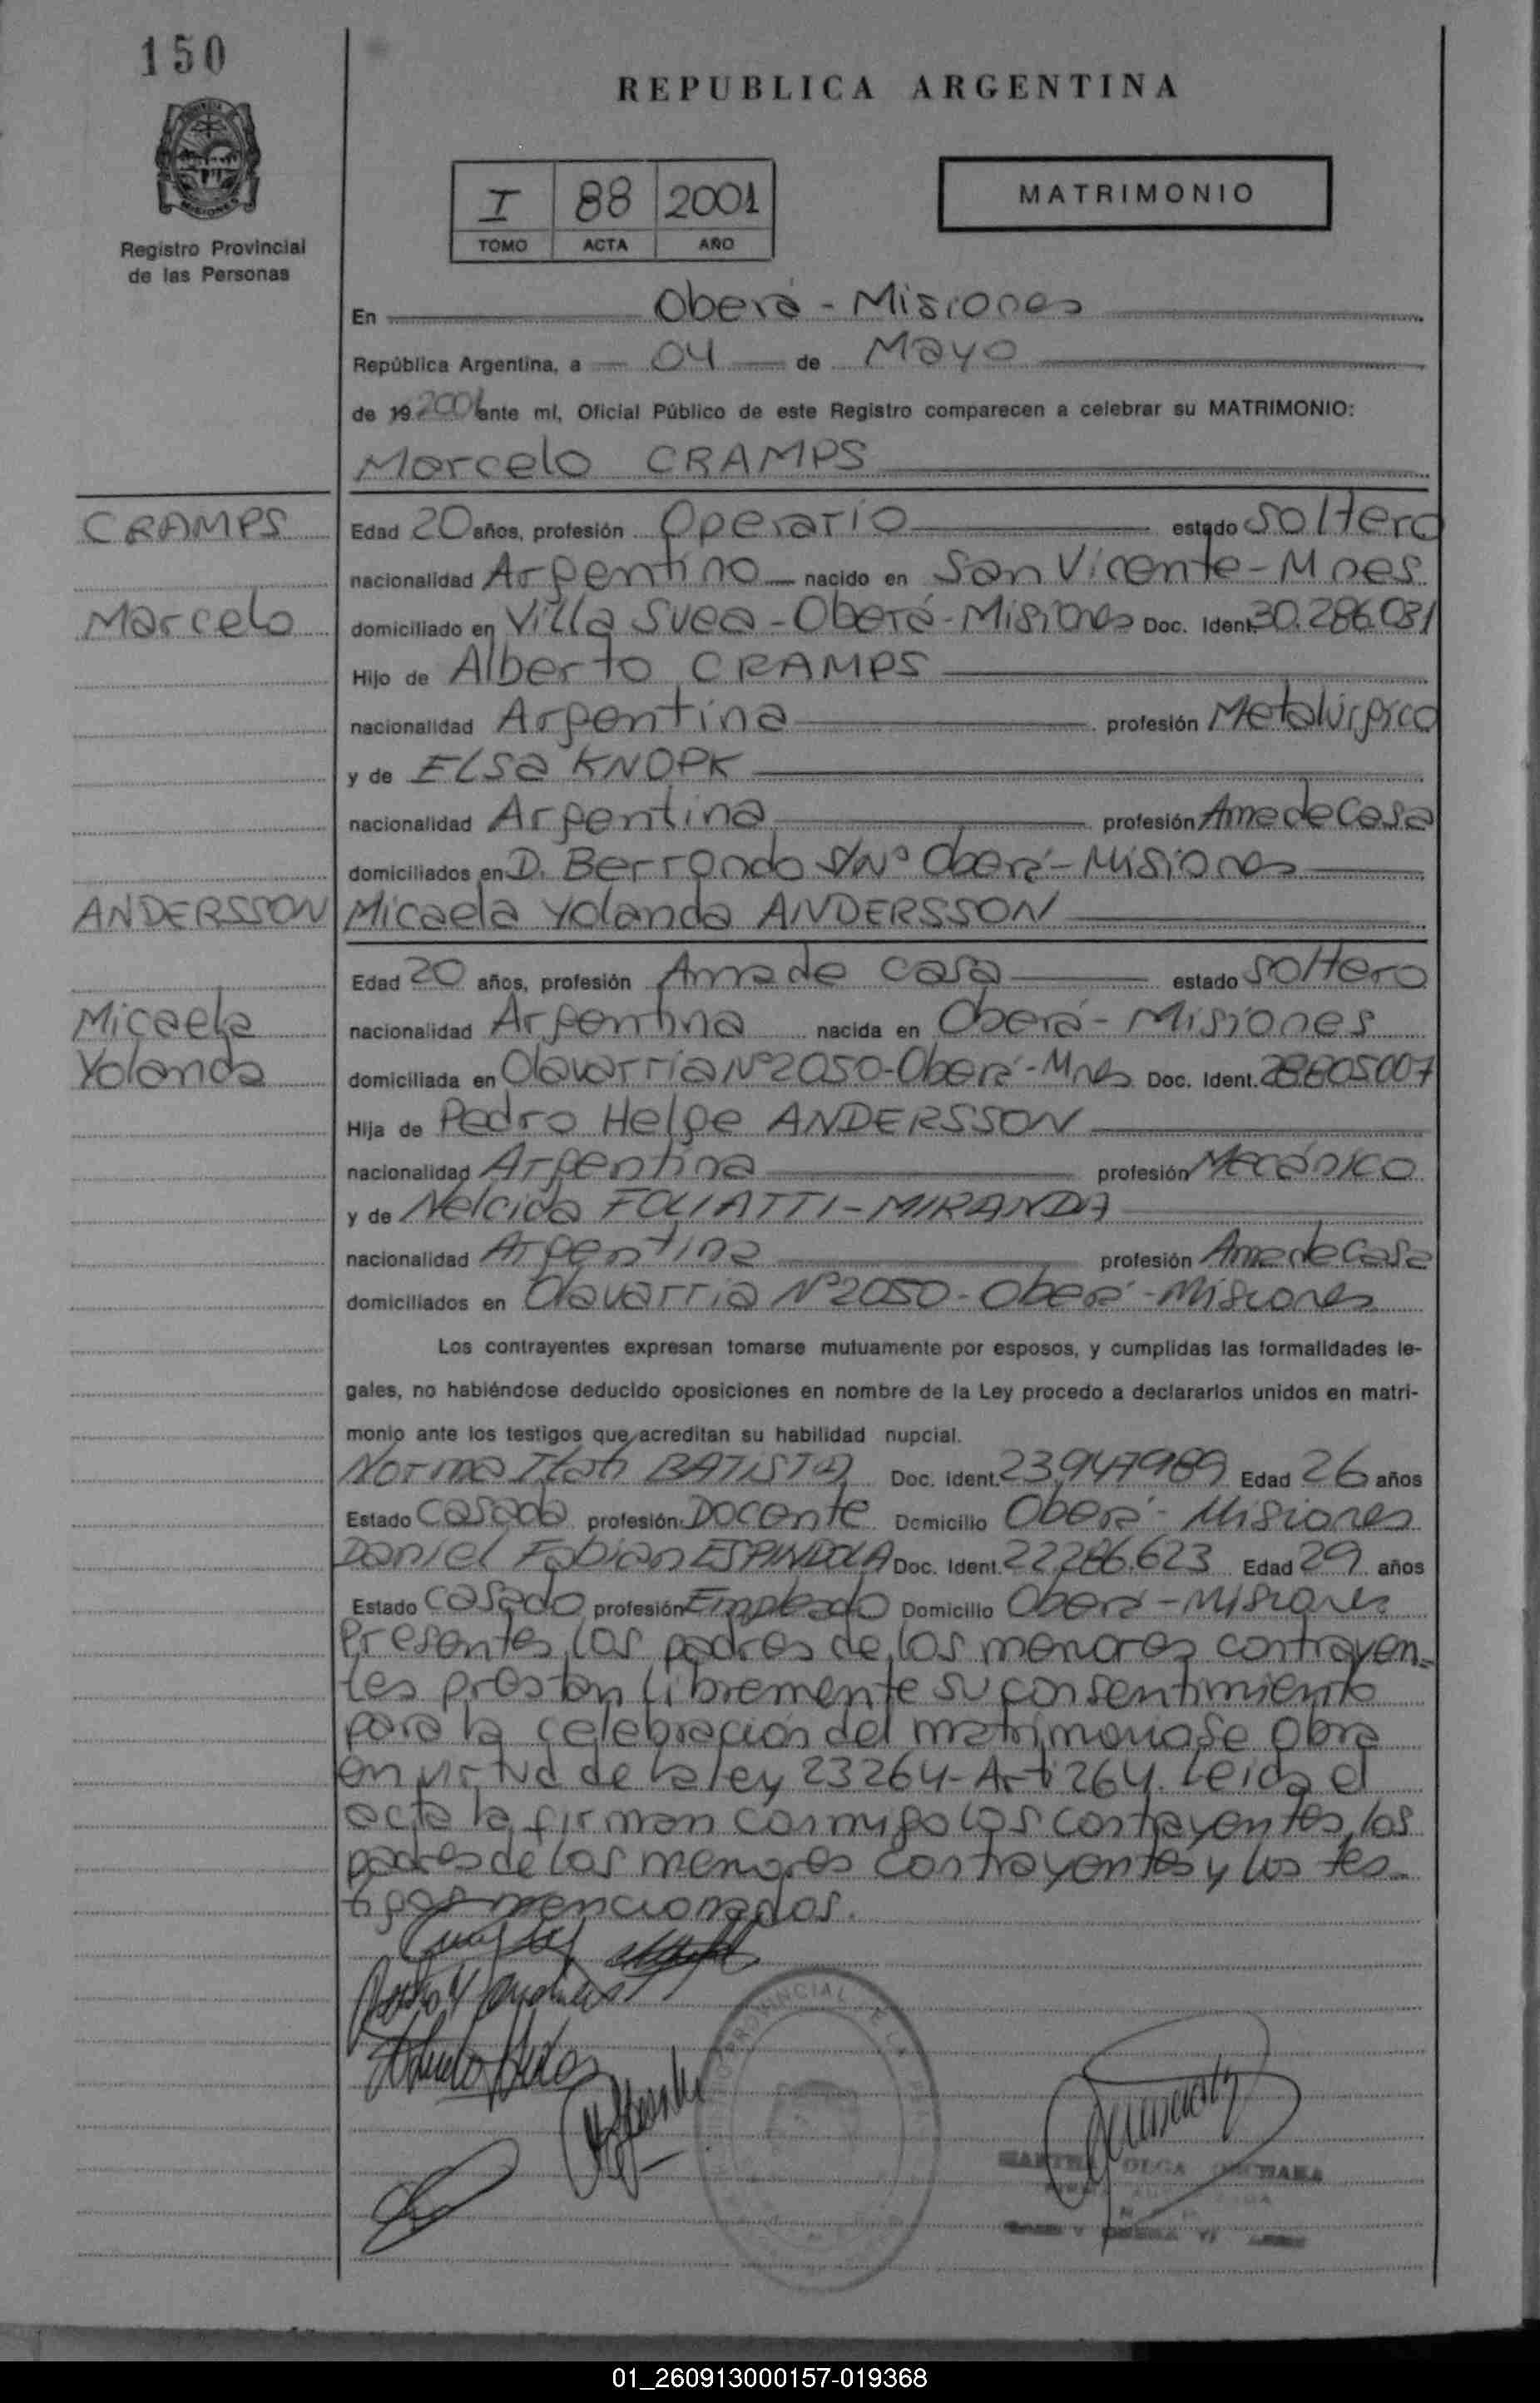 150
REPUBLICA ARGENTINA
MISIONES
Registro Provincial
de las Personas
I 88 2001
TOMO ACTA AÑO
MATRIMONIO
En Oberá - Misiones
República Argentina, a 04 de Mayo
de 19 2001 ante mí, Oficial Público de este Registro comparecen a celebrar su MATRIMONIO:
Marcelo CRAMPS
CRAMPS
Edad 20 años, profesión Operario estado soltero
nacionalidad Argentino nacido en San Vicente - Mnes
Marcelo
domiciliado en Villa Svea - Oberá - Misiones Doc. Ident. 30.286.031
Hijo de Alberto CRAMPS
nacionalidad Argentina profesión Metalúrgico
y de ELSa KNOPK
nacionalidad Argentina profesión Ama de Casa
domiciliados en D. Berrondo S/Nº Oberá - Misiones
ANDERSSON
Micaela Yolanda ANDERSSON
Edad 20 años, profesión Ama de casa estado soltero
Micaela
nacionalidad Argentina nacida en Oberá - Misiones
Yolanda
domiciliada en Olavarria Nº 2050 - Oberá - Mnes Doc. Ident. 28.805.007
Hija de Pedro Helge ANDERSSON
nacionalidad Argentina profesión Mecánico
y de Nelcida FOLIATTI - MIRANDA
nacionalidad Argentina profesión Ama de Casa
domiciliados en Olavarria Nº 2050 - Oberá - Misiones
Los contrayentes expresan tomarse mutuamente por esposos, y cumplidas las formalidades le-
gales, no habiéndose deducido oposiciones en nombre de la Ley procedo a declararlos unidos en matri-
monio ante los testigos que acreditan su habilidad nupcial.
Norma Itati BATISTA Doc. Ident. 23.947989 Edad 26 años
Estado Casada profesión Docente Domicilio Oberá - Misiones
Daniel Fabian ESPINDOLA Doc. Ident. 22.286.623 Edad 29 años
Estado Casado profesión Empleado Domicilio Oberá - Misiones
Presentes los padres de los menores contrayen-
tes prestan libremente su consentimiento
para la celebración del matrimonio se obra
en virtud de la ley 23264 - Art: 264. Leida el
acta la firman conmigo los contrayentes, los
padres de los menores contrayentes y los tes-
tigos mencionados.
PROVINCIAL DE LAS
OLGA
01_260913000157-019368